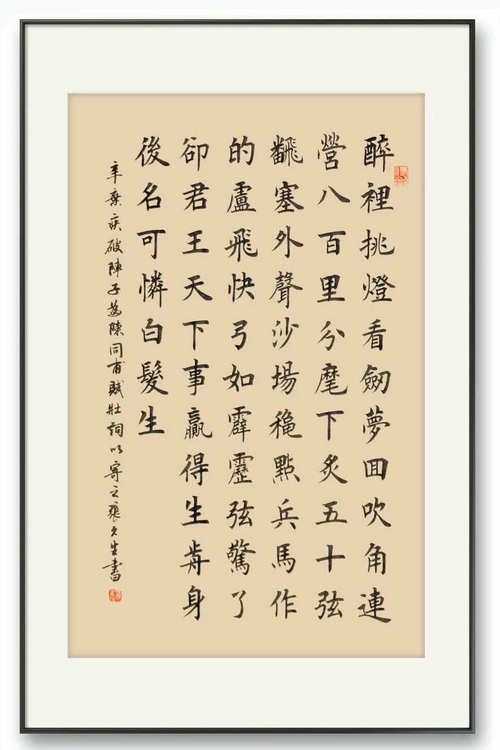 醉裡挑燈看劒夢囬吹角連
營八百里分麾下炙五十弦
飜塞外聲沙場穐點兵馬作
的盧飛快弓如霹靂弦驚了
卻君王天下事贏得生歬身
後名可憐白髮生
辛棄疾破陣子為陳同甫賦壯詞以寄之生書